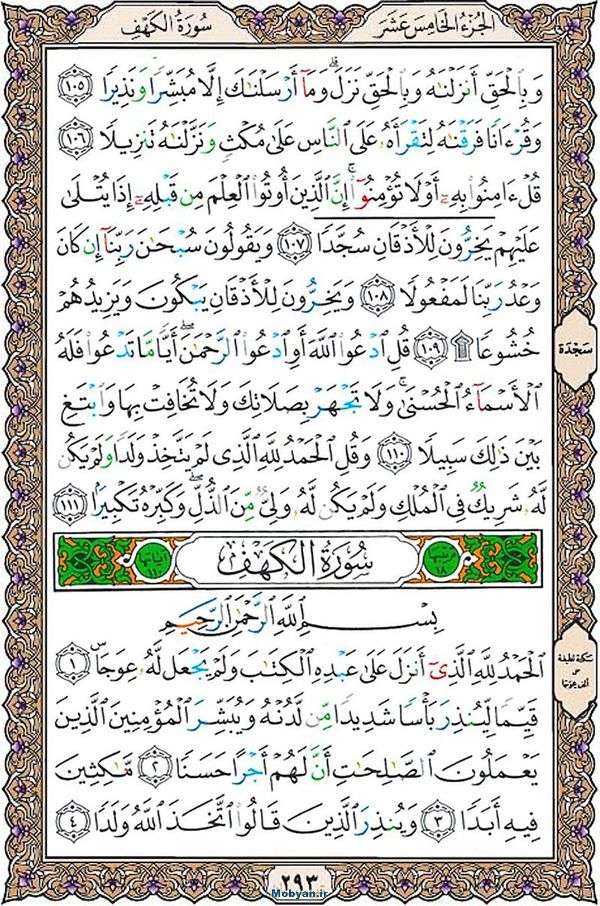 الجزء الخامس عشر
سورة الكهف
وَبِالْحَقِّ أَنزَلْنَٰهُ وَبِالْحَقِّ نَزَلَ ۗ وَمَآ أَرْسَلْنَٰكَ إِلَّا مُبَشِّرًا وَنَذِيرًا ١٠٥
وَقُرْءَانًا فَرَقْنَٰهُ لِتَقْرَأَهُۥ عَلَى ٱلنَّاسِ عَلَىٰ مُكْثٍ وَنَزَّلْنَٰهُ تَنزِيلًا ١٠٦
قُلْ ءَامِنُوا۟ بِهِۦٓ أَوْ لَا تُؤْمِنُوٓا۟ ۚ إِنَّ ٱلَّذِينَ أُوتُوا۟ ٱلْعِلْمَ مِن قَبْلِهِۦٓ إِذَا يُتْلَىٰ
عَلَيْهِمْ يَخِرُّونَ لِلْأَذْقَانِ سُجَّدًا ١٠٧ وَيَقُولُونَ سُبْحَٰنَ رَبِّنَآ إِن كَانَ
وَعْدُ رَبِّنَا لَمَفْعُولًا ١٠٨ وَيَخِرُّونَ لِلْأَذْقَانِ يَبْكُونَ وَيَزِيدُهُمْ
خُشُوعًا ۩ ١٠٩ قُلِ ٱدْعُوا۟ ٱللَّهَ أَوِ ٱدْعُوا۟ ٱلرَّحْمَٰنَ ۖ أَيًّا مَّا تَدْعُوا۟ فَلَهُ
ٱلْأَسْمَآءُ ٱلْحُسْنَىٰ ۚ وَلَا تَجْهَرْ بِصَلَاتِكَ وَلَا تُخَافِتْ بِهَا وَٱبْتَغِ
بَيْنَ ذَٰلِكَ سَبِيلًا ١١٠ وَقُلِ ٱلْحَمْدُ لِلَّهِ ٱلَّذِى لَمْ يَتَّخِذْ وَلَدًا وَلَمْ يَكُن
لَّهُۥ شَرِيكٌ فِى ٱلْمُلْكِ وَلَمْ يَكُن لَّهُۥ وَلِىٌّ مِّنَ ٱلذُّلِّ ۖ وَكَبِّرْهُ تَكْبِيرًۢا ١١١
سورة الكهف
بِسْمِ ٱللَّهِ ٱلرَّحْمَٰنِ ٱلرَّحِيمِ
ٱلْحَمْدُ لِلَّهِ ٱلَّذِىٓ أَنزَلَ عَلَىٰ عَبْدِهِ ٱلْكِتَٰبَ وَلَمْ يَجْعَل لَّهُۥ عِوَجَا ۜ ١
قَيِّمًا لِّيُنذِرَ بَأْسًا شَدِيدًا مِّن لَّدُنْهُ وَيُبَشِّرَ ٱلْمُؤْمِنِينَ ٱلَّذِينَ
يَعْمَلُونَ ٱلصَّٰلِحَٰتِ أَنَّ لَهُمْ أَجْرًا حَسَنًا ٢ مَّٰكِثِينَ
فِيهِ أَبَدًا ٣ وَيُنذِرَ ٱلَّذِينَ قَالُوا۟ ٱتَّخَذَ ٱللَّهُ وَلَدًا ٤
سَجْدَة
سكتة لطيفة
على
ألف عوجا
٢٩٣
Mobyan.ir